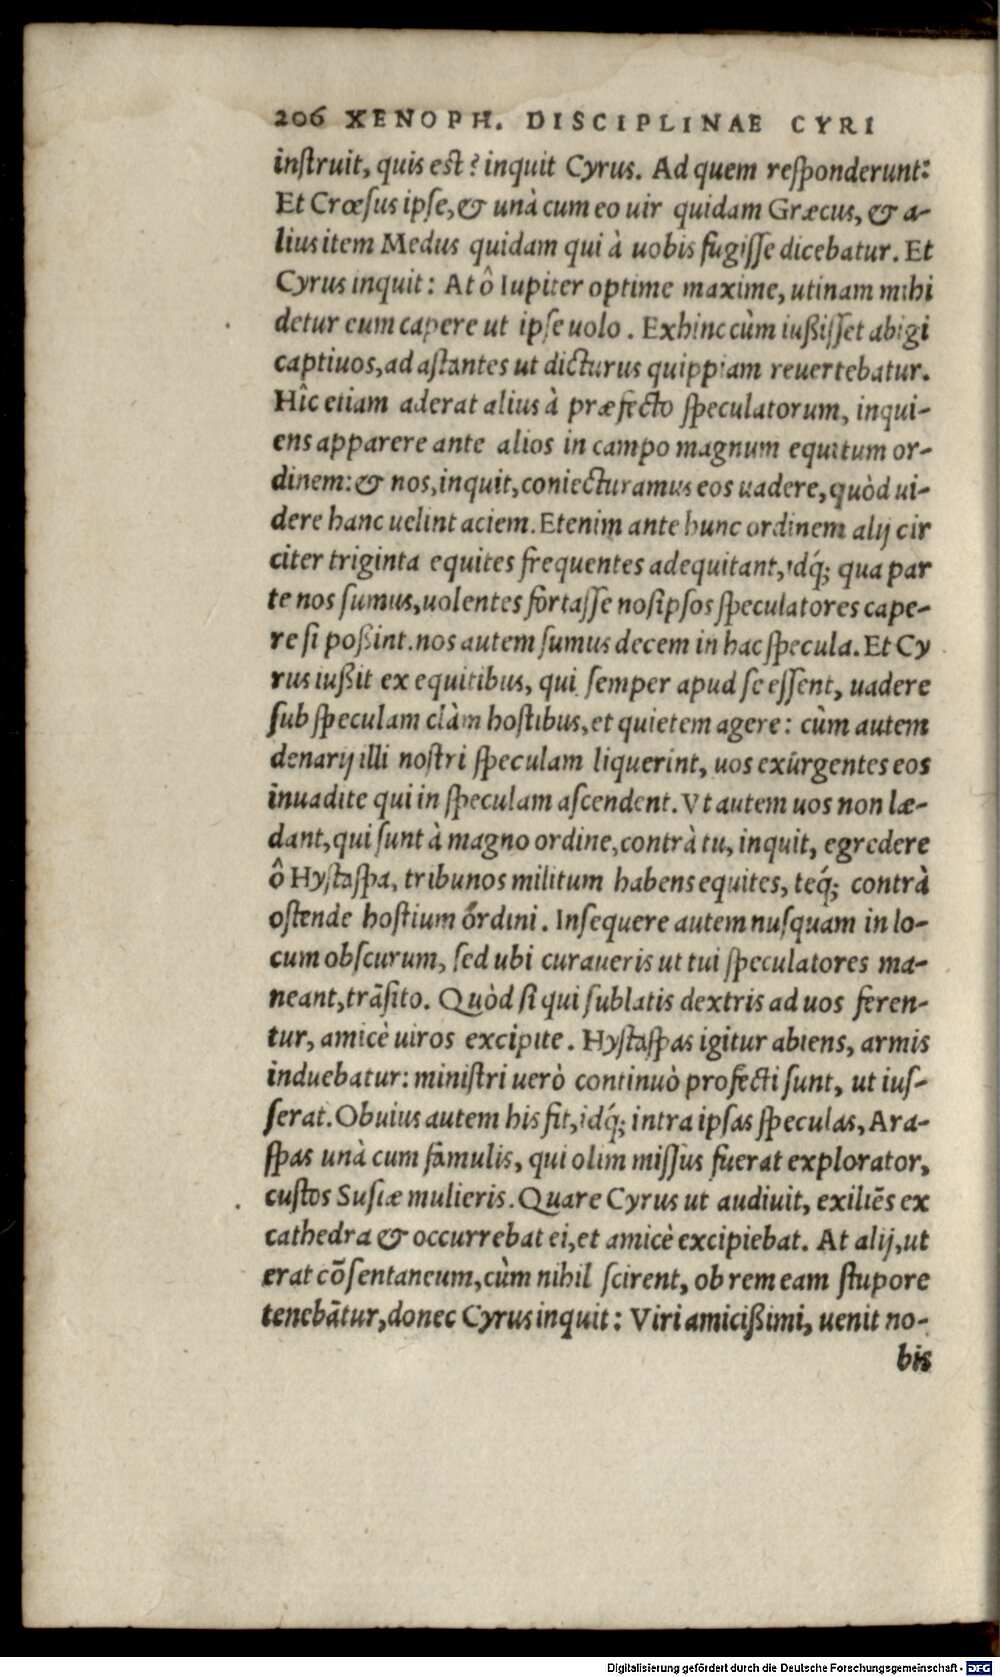 206 XENOPH. DISCIPLINAE CYRI
instruit, quis est? inquit Cyrus. Ad quem responderunt:
Et Crœsus ipse, & unà cum eo uir quidam Græcus, & a-
lius item Medus quidam qui à uobis fugisse dicebatur. Et
Cyrus inquit: At ô Iupiter optime maxime, utinam mihi
detur eum capere ut ipse uolo. Exhinc cùm iußisset abigi
captiuos, ad astantes ut dicturus quippiam reuertebatur.
Hîc etiam aderat alius à præfecto speculatorum, inqui-
ens apparere ante alios in campo magnum equitum or-
dinem: & nos, inquit, coniecturamus eos uadere, quòd ui-
dere hanc uelint aciem. Etenim ante hunc ordinem alij cir
citer triginta equites frequentes adequitant, idq́; qua par
te nos sumus, uolentes fortasse nosipsos speculatores cape-
re si poßint. nos autem sumus decem in hac specula. Et Cy
rus iußit ex equitibus, qui semper apud se essent, uadere
sub speculam clàm hostibus, et quietem agere: cùm autem
denarij illi nostri speculam liquerint, uos exurgentes eos
inuadite qui in speculam ascendent. Vt autem uos non læ-
dant, qui sunt à magno ordine, contrà tu, inquit, egredere
ô Hystaspa, tribunos militum habens equites, teq́; contrà
ostende hostium ordini. Insequere autem nusquam in lo-
cum obscurum, sed ubi curaueris ut tui speculatores ma-
neant, trāsito. Quòd si qui sublatis dextris ad uos feren-
tur, amicè uiros excipite. Hystaspas igitur abiens, armis
induebatur: ministri uerò continuò profecti sunt, ut ius-
serat. Obuius autem his fit, idq́; intra ipsas speculas, Ara-
spas unà cum famulis, qui olim missus fuerat explorator,
custos Susiæ mulieris. Quare Cyrus ut audiuit, exiliēs ex
cathedra & occurrebat ei, et amicè excipiebat. At alij, ut
erat cōsentaneum, cùm nihil scirent, ob rem eam stupore
tenebātur, donec Cyrus inquit: Viri amicißimi, uenit no-
bis
Digitalisierung gefördert durch die Deutsche Forschungsgemeinschaft - DFG